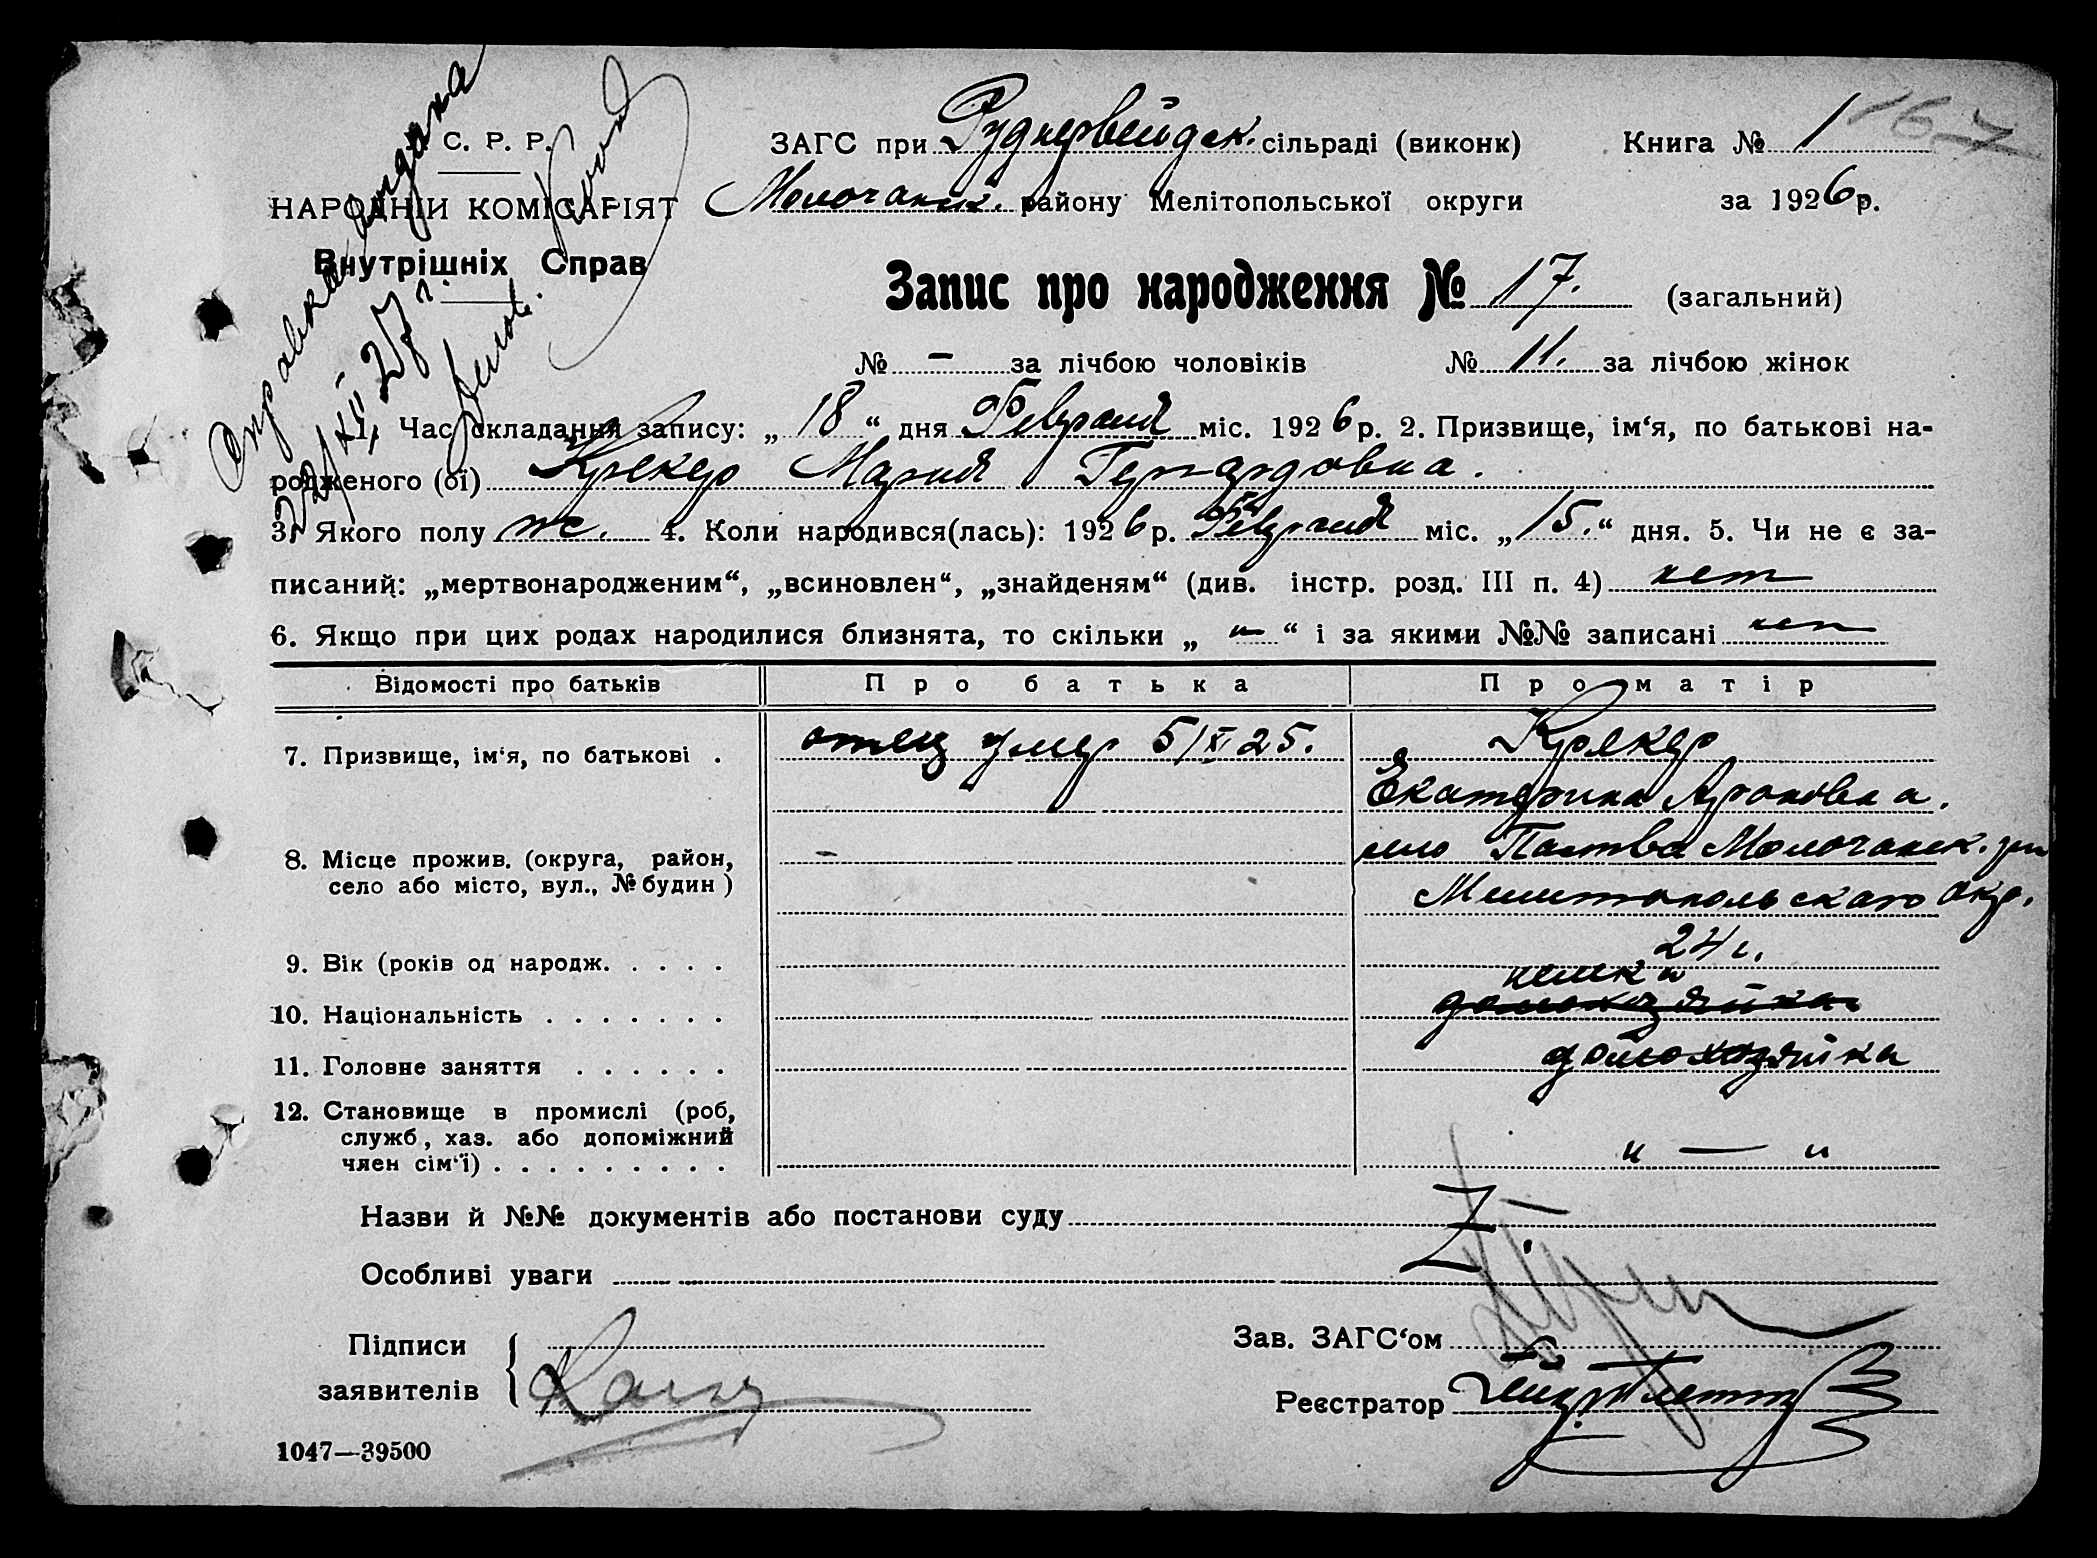 Справка выдана
22/XII 28 г.
С. Р. Р.
НАРОДНІЙ КОМІСАРІЯТ
Внутрішніх Справ
ЗАГС при Руднервейдск. сільраді (виконк)
Молочанск. району Мелітопольської округи
Книга № 1 167
за 1926 р.
Запис про народження № 17. (загальний)
№ – за лічбою чоловіків № 11. за лічбою жінок
1. Час складання запису: „ 18 “ дня Февраля міс. 1926 р. 2. Призвище, ім‘я, по батькові на-
родженого (ої) Крекер Мария Гергардовна.
3. Якого полу ж. 4. Коли народився(лась): 1926 р. Февраля міс. „ 15. “ дня. 5. Чи не є за-
писаний: „мертвонародженим“, „всиновлен“, „знайденям“ (див. інстр. розд. III п. 4) нет
6. Якщо при цих родах народилися близнята, то скільки „ – “ і за якими №№ записані нет
Відомості про батьків Про батька Про матір
7. Призвище, ім‘я, по батькові . отец умер 5/XI 25. Крекер
Екатерина Ароновна.
8. Місце прожив. (округа, район,
село або місто, вул., № будин ) – село Паства Молочанск. рн
Мелитопольскаго окр.
9. Вік (років од народж. . . . . 24 г.
10. Національність . . . . . . . немка
домохозяйка
11. Головне заняття . . . . . . домохозяйка
12. Становище в промислі (роб,
служб, хаз. або допоміжний
член сім‘ї) . . . . . . . . . „ — „
Назви й №№ документів або постанови суду
Особливі уваги
Підписи
заявителів
Зав. ЗАГС‘ом
Реєстратор
1047—39500